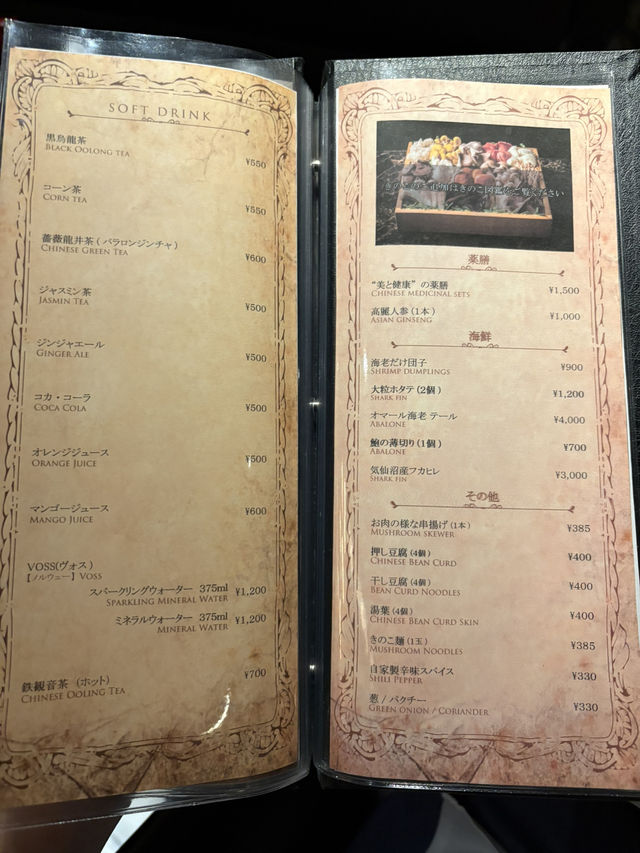 SOFT DRINK
黒烏龍茶
BLACK OOLONG TEA
¥550
コーン茶
CORN TEA
¥550
薔薇龍井茶 ( バラロンジンチャ )
CHINESE GREEN TEA
¥600
ジャスミン茶
JASMIN TEA
¥500
ジンジャエール
GINGER ALE
¥500
コカ・コーラ
COCA COLA
¥500
オレンジジュース
ORANGE JUICE
¥500
マンゴージュース
MANGO JUICE
¥600
VOSS(ヴォス)
【ノルウェー】VOSS
スパークリングウォーター 375ml ¥1,200
SPARKLING MINERAL WATER
ミネラルウォーター 375ml ¥1,200
MINERAL WATER
鉄観音茶 (ホット)
CHINESE OOLING TEA
¥700
きのこのご追加はきのこ図鑑をご覧ください
薬膳
“美と健康” の薬膳
CHINESE MEDICINAL SETS
¥1,500
高麗人参 (1本)
ASIAN GINSENG
¥1,000
海鮮
海老だけ団子
SHRIMP DUMPLINGS
¥900
大粒ホタテ (2個)
SHARK FIN
¥1,200
オマール海老 テール
ABALONE
¥4,000
鮑の薄切り (1個)
ABALONE
¥700
気仙沼産フカヒレ
SHARK FIN
¥3,000
その他
お肉の様な串揚げ (1本)
MUSHROOM SKEWER
¥385
押し豆腐 (4個)
CHINESE BEAN CURD
¥400
干し豆腐 (4個)
BEAN CURD NOODLES
¥400
湯葉 (4個)
CHINESE BEAN CURD SKIN
¥400
きのこ麺 (1玉)
MUSHROOM NOODLES
¥385
自家製辛味スパイス
SHILI PEPPER
¥330
葱 / パクチー
GREEN ONION / CORIANDER
¥330